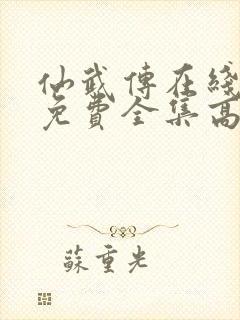 仙武傳在綫
免費全集高
蘇重光